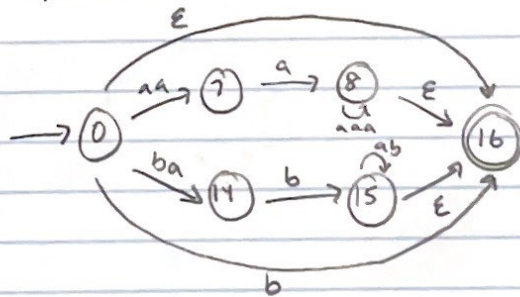 ε
aa 7 a 8 ε
aaa
0 16
ba 14 b 15 ab ε
b